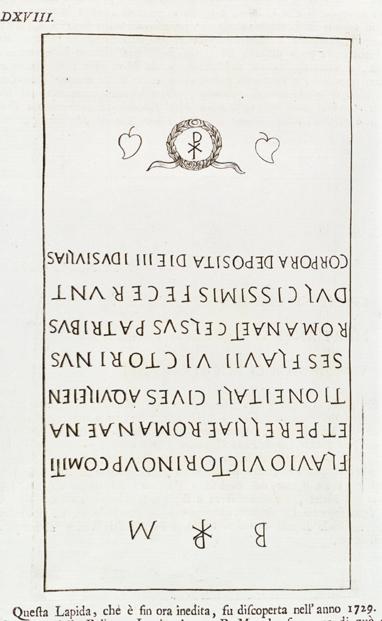 DXVIII.
B ☧ M
FLAVIO VICTORINO VP COMITI
ET PERELIVAE ROMANAE NA
TIONE ITALI CIVES AQVILEIEN
SES FLAVII VICTORINVS
ROMANA ET CELSVS PATRIBVS
DVLCISSIMIS FECERVNT
CORPORA DEPOSITA DIE III IDVS IVLIAS
☧
Questa Lapida, che è fin ora inedita, fu discoperta nell'anno 1729.